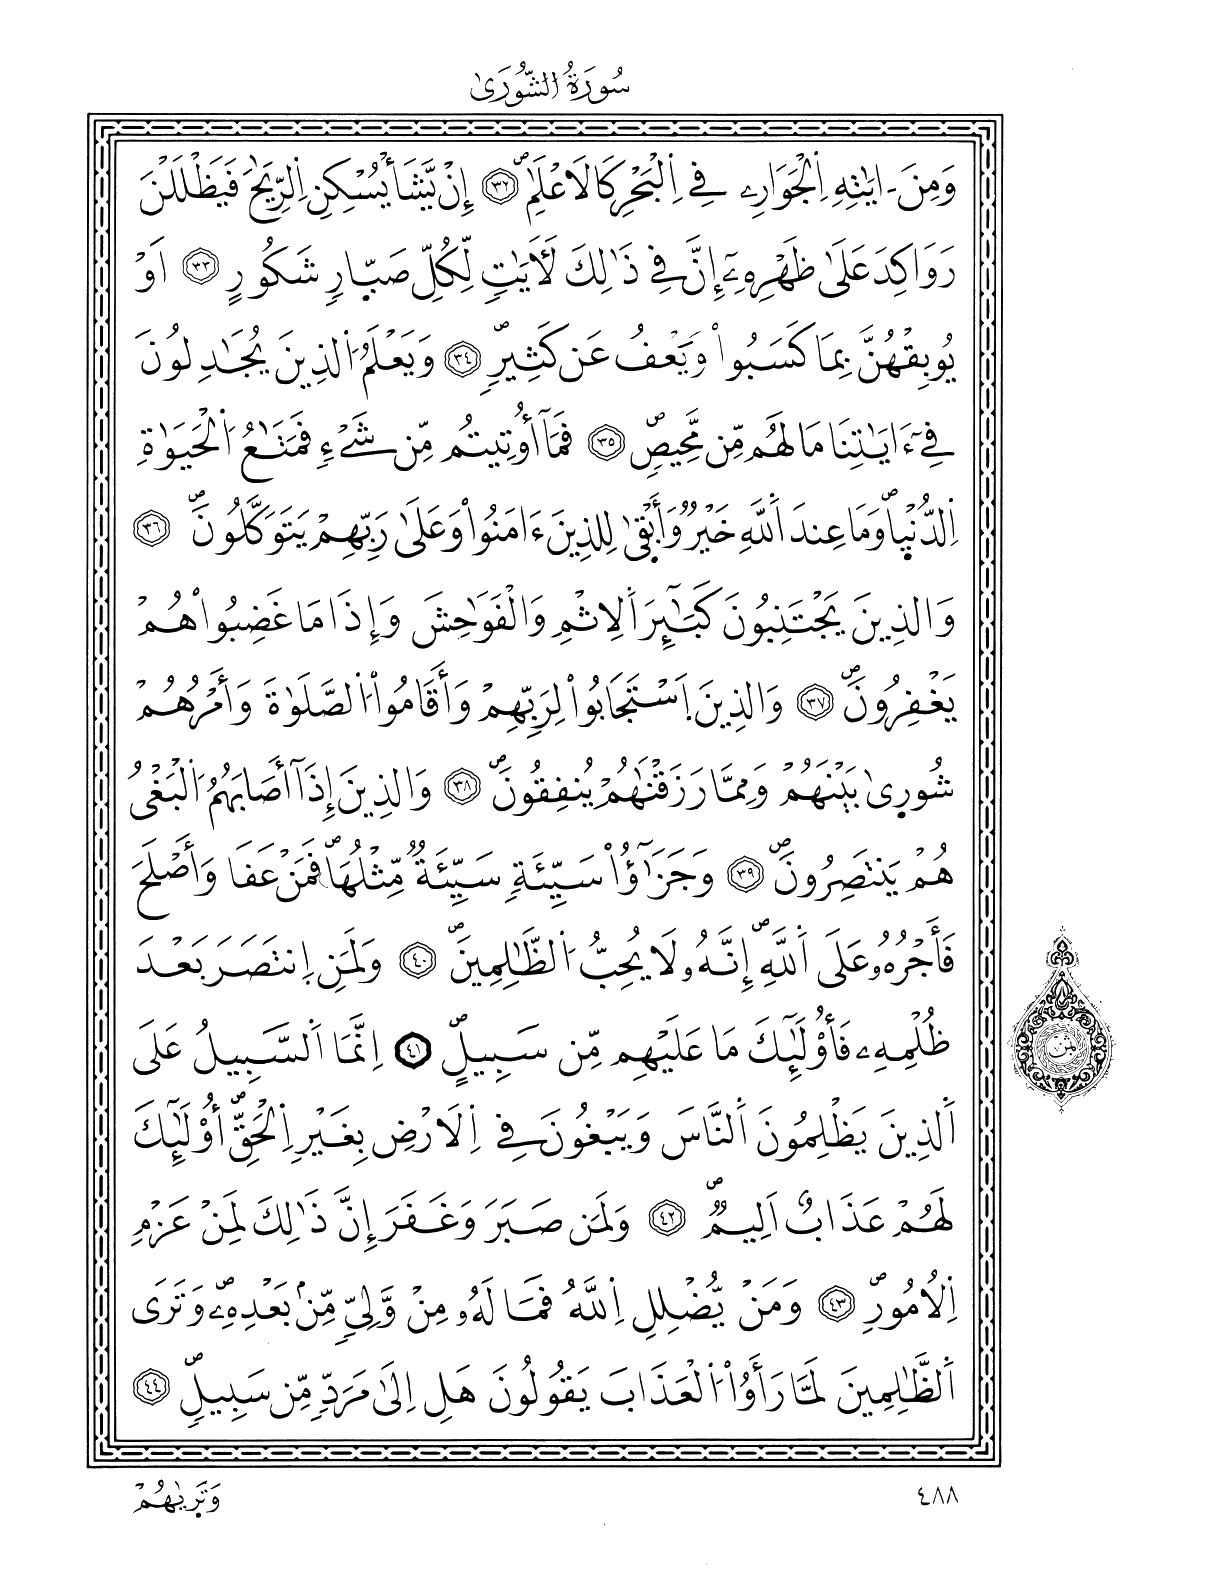 سُورَةُ الشُّورَىٰ
وَمِنَ ـ ايَٰتِهِ اِ۬لْجَوَارِۦ فِے اِ۬لْبَحْرِ كَالَاعْلَٰمِۖ ۝٣٢ إِنْ يَّشَأْ يُسْكِنِ اِ۬لرِّيَٰحَ فَيَظْلَلْنَ
رَوَاكِدَ عَلَىٰ ظَهْرِهِۦٓ إِنَّ فِے ذَٰلِكَ لَأٓيَٰتٖ لِّكُلِّ صَبّ۪ارٖ شَكُورٍ ۝٣٣ اَوْ
يُوبِقْهُنَّ بِمَا كَسَبُواْ وَيَعْفُ عَن كَثِيرٖۖ ۝٣٤ وَيَعْلَمُ اُ۬لذِينَ يُجَٰدِلُونَ
فِےٓ ءَايَٰتِنَا مَا لَهُم مِّن مَّحِيصٖۖ ۝٣٥ فَمَآ أُوتِيتُم مِّن شَےْءٖ فَمَتَٰعُ اُ۬لْحَيَوٰةِ
اِ۬لدُّنْي۪اۖ وَمَا عِندَ اَ۬للَّهِ خَيْرٞ وَأَبْق۪ىٰ لِلذِينَ ءَامَنُواْ وَعَلَىٰ رَبِّهِمْ يَتَوَكَّلُونَۖ ۝٣٦
وَالذِينَ يَجْتَنِبُونَ كَبَٰٓئِرَ اَ۬لِاثْمِ وَالْفَوَٰحِشَ وَإِذَا مَا غَضِبُواْ هُمْ
يَغْفِرُونَۖ ۝٣٧ وَالذِينَ اَ۪سْتَجَابُواْ لِرَبِّهِمْ وَأَقَامُواْ اُ۬لصَّلَوٰةَ وَأَمْرُهُمْ
شُور۪ىٰ بَيْنَهُمْ وَمِمَّا رَزَقْنَٰهُمْ يُنفِقُونَۖ ۝٣٨ وَالذِينَ إِذَآ أَصَابَهُمُ اُ۬لْبَغْيُ
هُمْ يَنتَصِرُونَۖ ۝٣٩ وَجَزَٰٓؤُاْ سَيِّئَةٖ سَيِّئَةٞ مِّثْلُهَاۖ فَمَنْ عَفَا وَأَصْلَحَ
فَأَجْرُهُۥ عَلَى اَ۬للَّهِۖ إِنَّهُۥ لَا يُحِبُّ اُ۬لظَّٰلِمِينَۖ ۝٤٠ وَلَمَنِ اِ۪نتَصَرَ بَعْدَ
ظُلْمِهِۦ فَأُوْلَٰٓئِكَ مَا عَلَيْهِم مِّن سَبِيلٍۖ ۝٤١ اِنَّمَا اَ۬لسَّبِيلُ عَلَى
اَ۬لذِينَ يَظْلِمُونَ اَ۬لنَّاسَ وَيَبْغُونَ فِے اِ۬لَارْضِ بِغَيْرِ اِ۬لْحَقِّۖ أُوْلَٰٓئِكَ
لَهُمْ عَذَابٌ اَلِيمٞۖ ۝٤٢ وَلَمَن صَبَرَ وَغَفَرَ إِنَّ ذَٰلِكَ لَمِنْ عَزْمِ
اِ۬لُامُورِۖ ۝٤٣ وَمَنْ يُّضْلِلِ اِ۬للَّهُ فَمَا لَهُۥ مِنْ وَّلِيّٖ مِّنۢ بَعْدِهِۦۖ وَتَرَى
اَ۬لظَّٰلِمِينَ لَمَّا رَأَوُاْ اُ۬لْعَذَابَ يَقُولُونَ هَلِ اِلَىٰ مَرَدّٖ مِّن سَبِيلٖۖ ۝٤٤
ثمن
٤٨٨
وَتَر۪يٰهُمْ